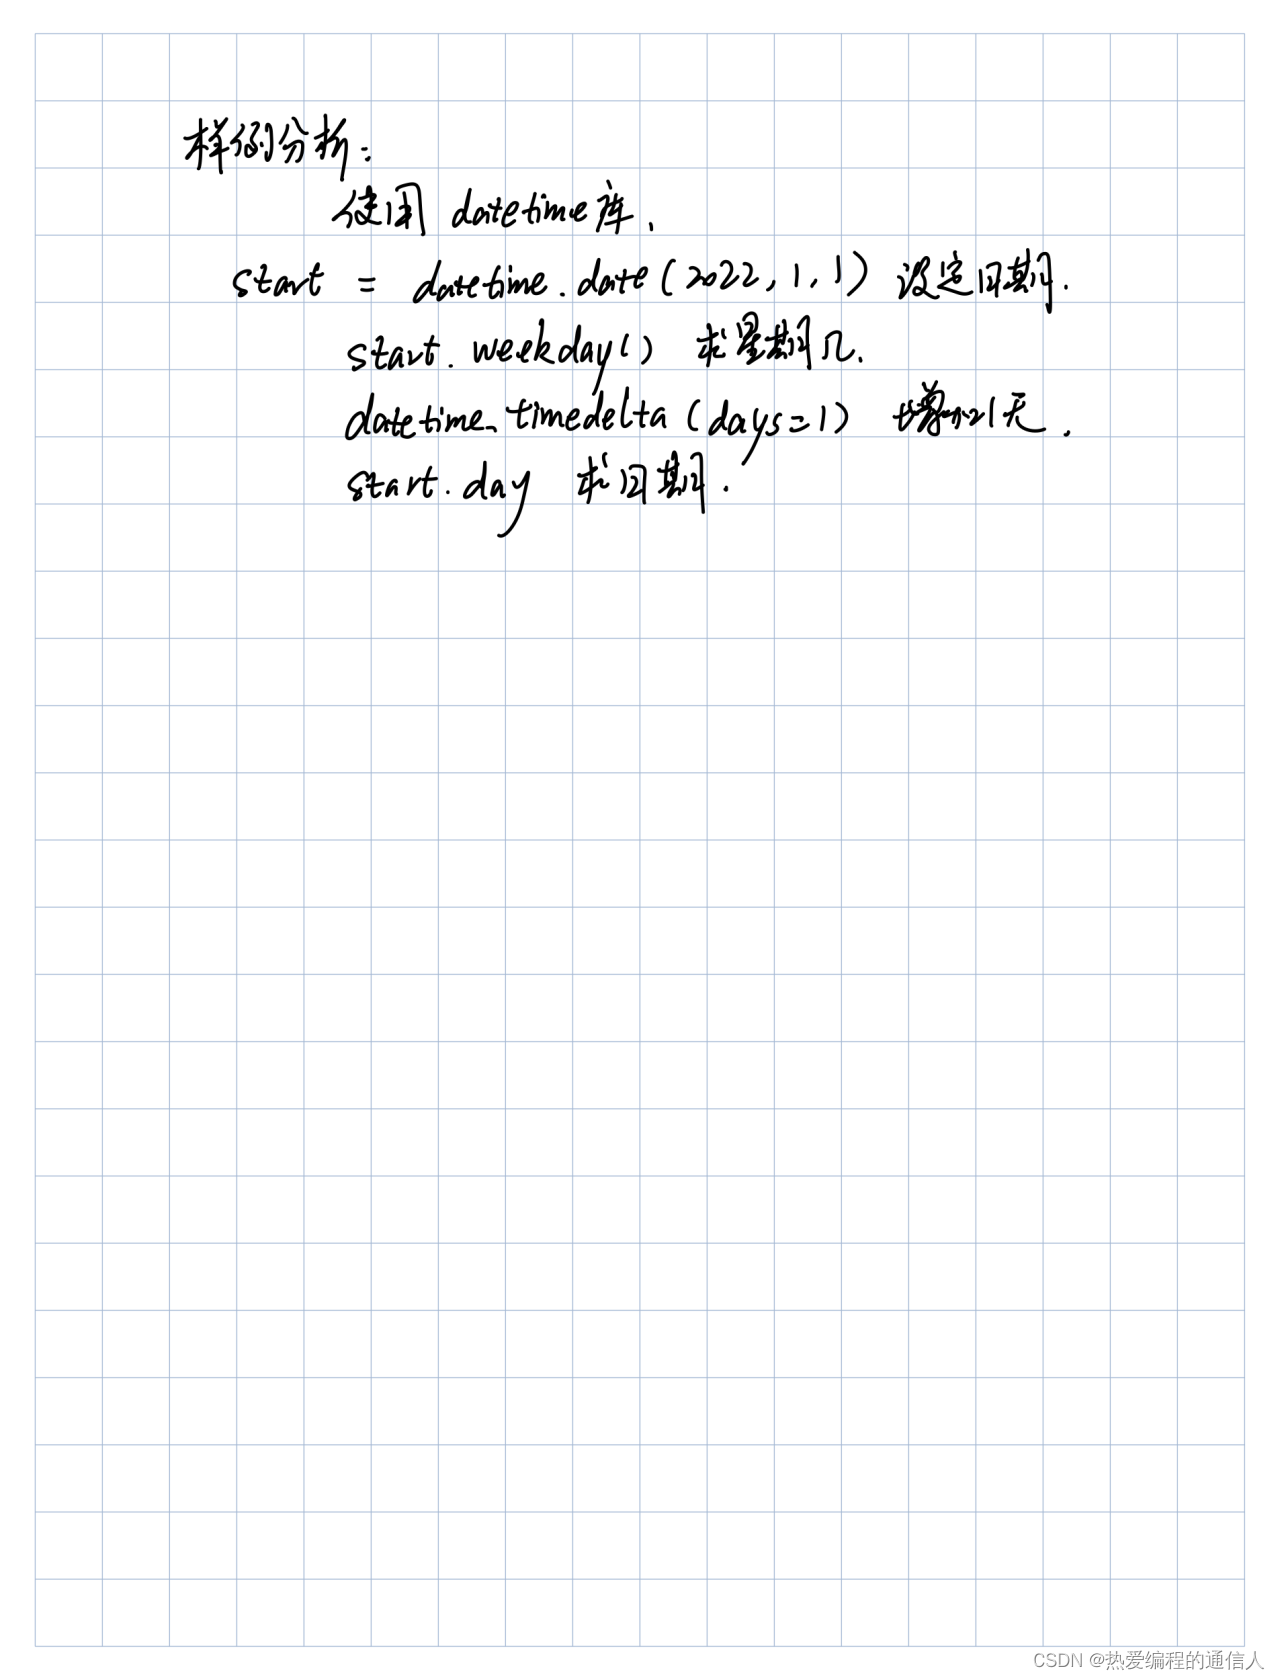 样例分析:
使用 datetime库.
start = datetime.date(2022,1,1) 设定日期.
start.weekday() 求星期几.
datetime.timedelta(days=1) 增加1天.
start.day 求日期.
CSDN @热爱编程的通信人